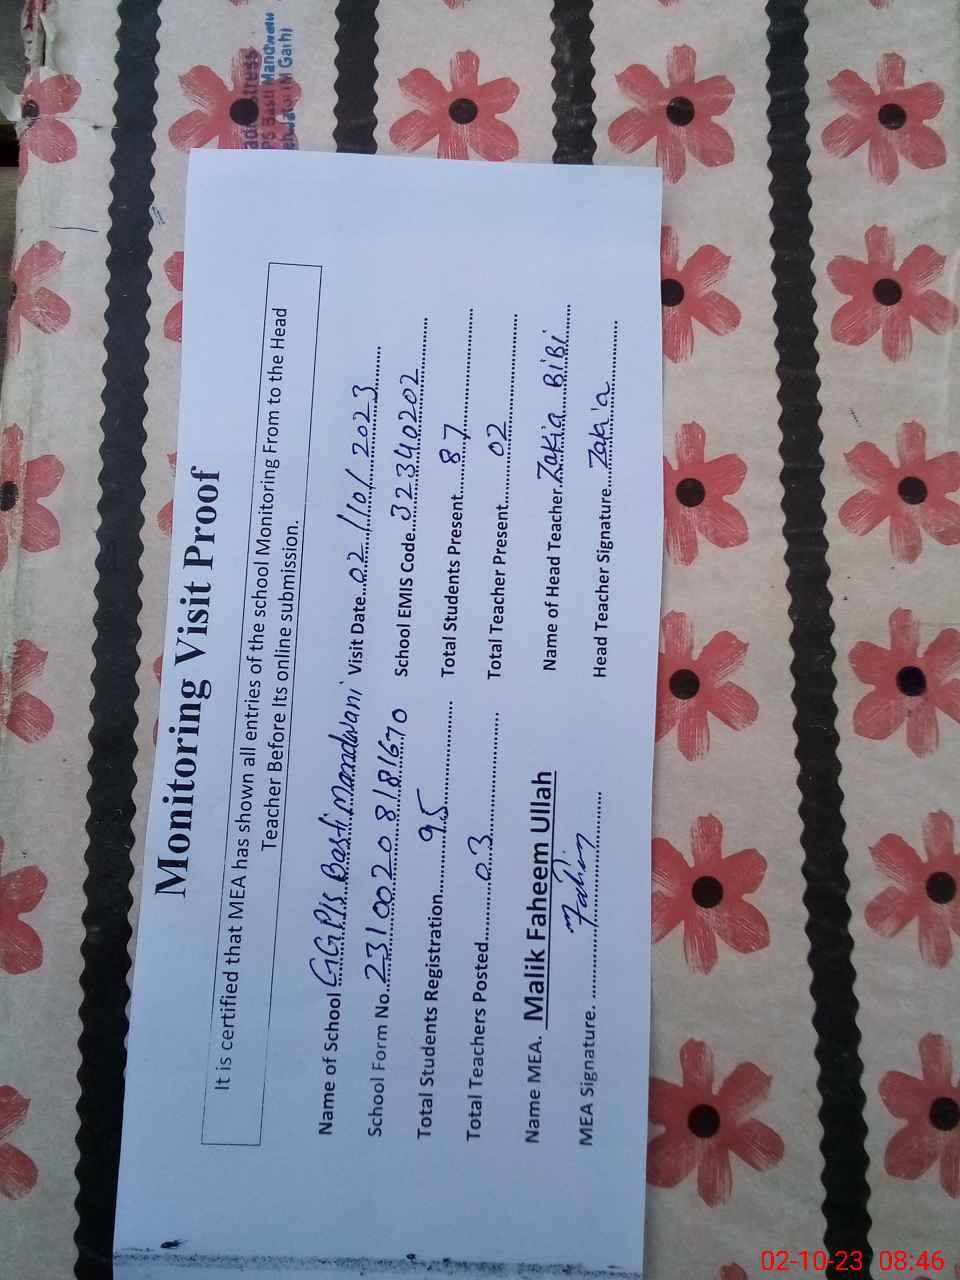 Monitoring Visit Proof
It is certified that MEA has shown all entries of the school Monitoring From to the Head
Teacher Before Its online submission.
Name of School GGPS Basti Mandwani Visit Date 02/10/2023
School Form No 23100208181670 School EMIS Code 32340202
Total Students Registration 95 Total Students Present 87
Total Teachers Posted 03 Total Teacher Present 02
Name MEA. Malik Faheem Ullah Name of Head Teacher Zakia BiBi
MEA Signature. Fahim Head Teacher Signature Zakia
PS Basti Mandwani
Garhi
02-10-23 08:46